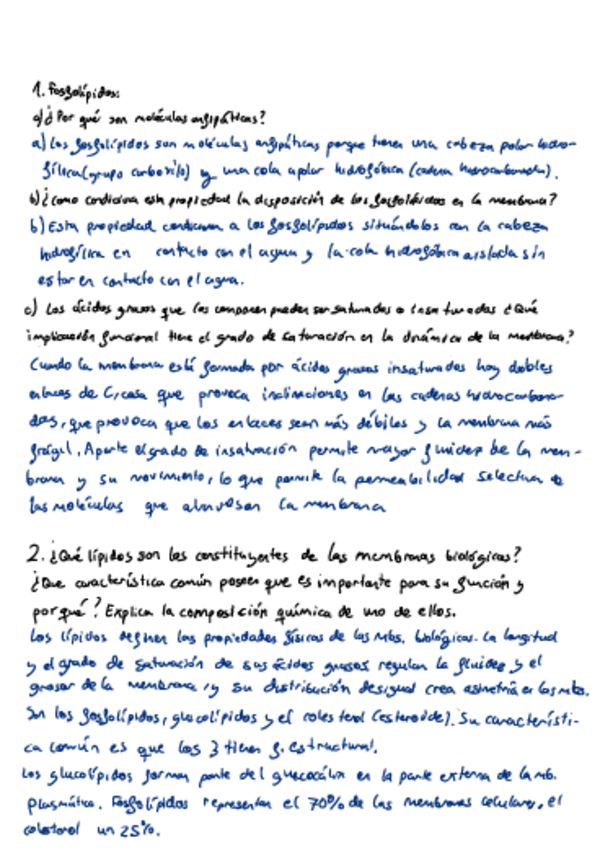 1. Fosfolípidos:
a) ¿Por qué son moléculas anfipáticas?
a) Los fosfolípidos son moléculas anfipáticas porque tienen una cabeza polar hidro-
fílica (grupo carboxilo) y una cola apolar hidrofóbica (cadena hidrocarbonada).
b) ¿Como condiciona esta propiedad la disposición de los fosfolípidos en la membrana?
b) Esta propiedad condiciona a los fosfolípidos situándolos con la cabeza
hidrofílica en contacto con el agua y la cola hidrofóbica aislada sin
estar en contacto con el agua.
c) Los ácidos grasos que los componen pueden ser saturados o insaturados ¿Qué
implicación funcional tiene el grado de saturación en la dinámica de la membrana?
Cuando la membrana está formada por ácidos grasos insaturados hay dobles
enlaces de C, cosa que provoca inclinaciones en las cadenas hidrocarbona-
das, que provoca que los enlaces sean más débiles y la membrana más
frágil. Aparte el grado de insaturación permite mayor fluidez de la mem-
brana y su movimiento, lo que permite la permeabilidad selectiva de
las moléculas que atraviesan la membrana
2. ¿Qué lípidos son los constituyentes de las membranas biológicas?
¿Que característica común poseen que es importante para su función y
por qué? Explica la composición química de uno de ellos.
Los lípidos definen las propiedades físicas de las mbs. biológicas. La longitud
y el grado de saturación de sus ácidos grasos regulan la fluidez y el
grosor de la membrana, y su distribución desigual crea asimetría en las mbs.
Son los fosfolípidos, glucolípidos y el colesterol (esteroide). Su característi-
ca común es que los 3 tienen f. estructural.
Los glucolípidos forman parte del glucocálix en la parte externa de la mb.
plasmática. Fosfolípidos representan el 70% de las membranas celulares, el
colesterol un 25%.